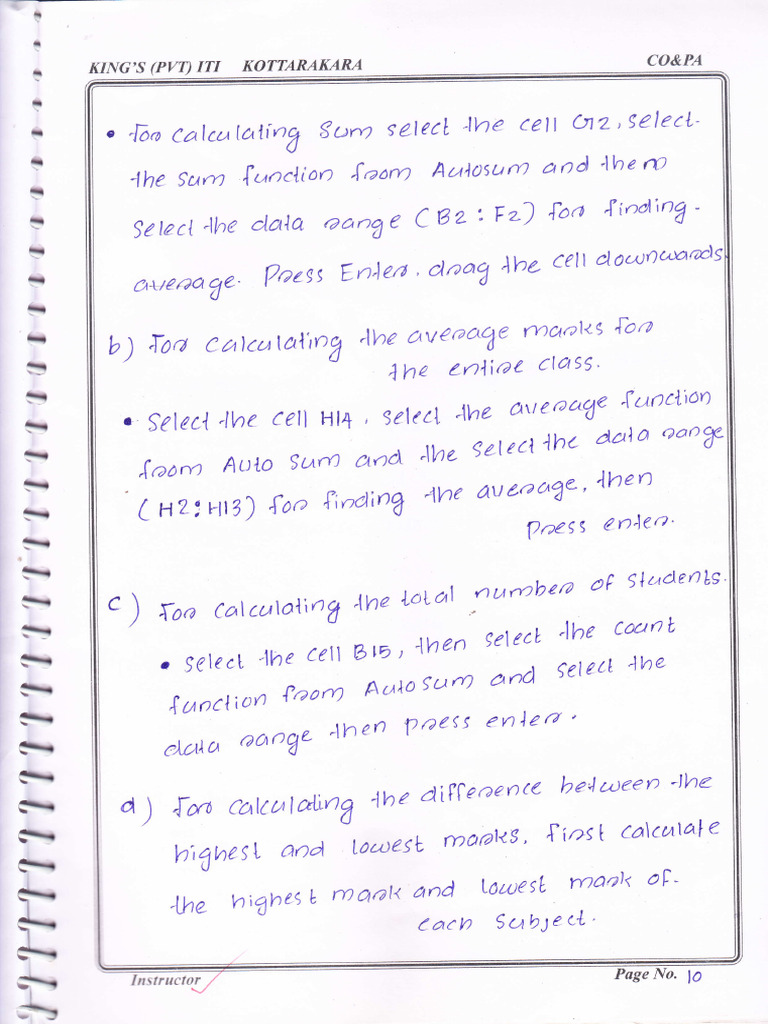 KING'S (PVT) ITI KOTTARAKARA CO&PA
• For calculating Sum select the cell G2, select
the sum function from Autosum and then
select the data range (B2:F2) for finding
average. Press Enter, drag the cell downwards.
b) For calculating the average marks for
the entire class.
• Select the cell H14, select the average function
from Auto Sum and the select the data range
(H2:H13) for finding the average, then
press enter.
c) For calculating the total number of students.
• select the cell B15, then select the count
function from AutoSum and select the
data range then press enter.
d) For calculating the difference between the
highest and lowest marks, first calculate
the highest mark and lowest mark of
each subject.
Instructor Page No. 10